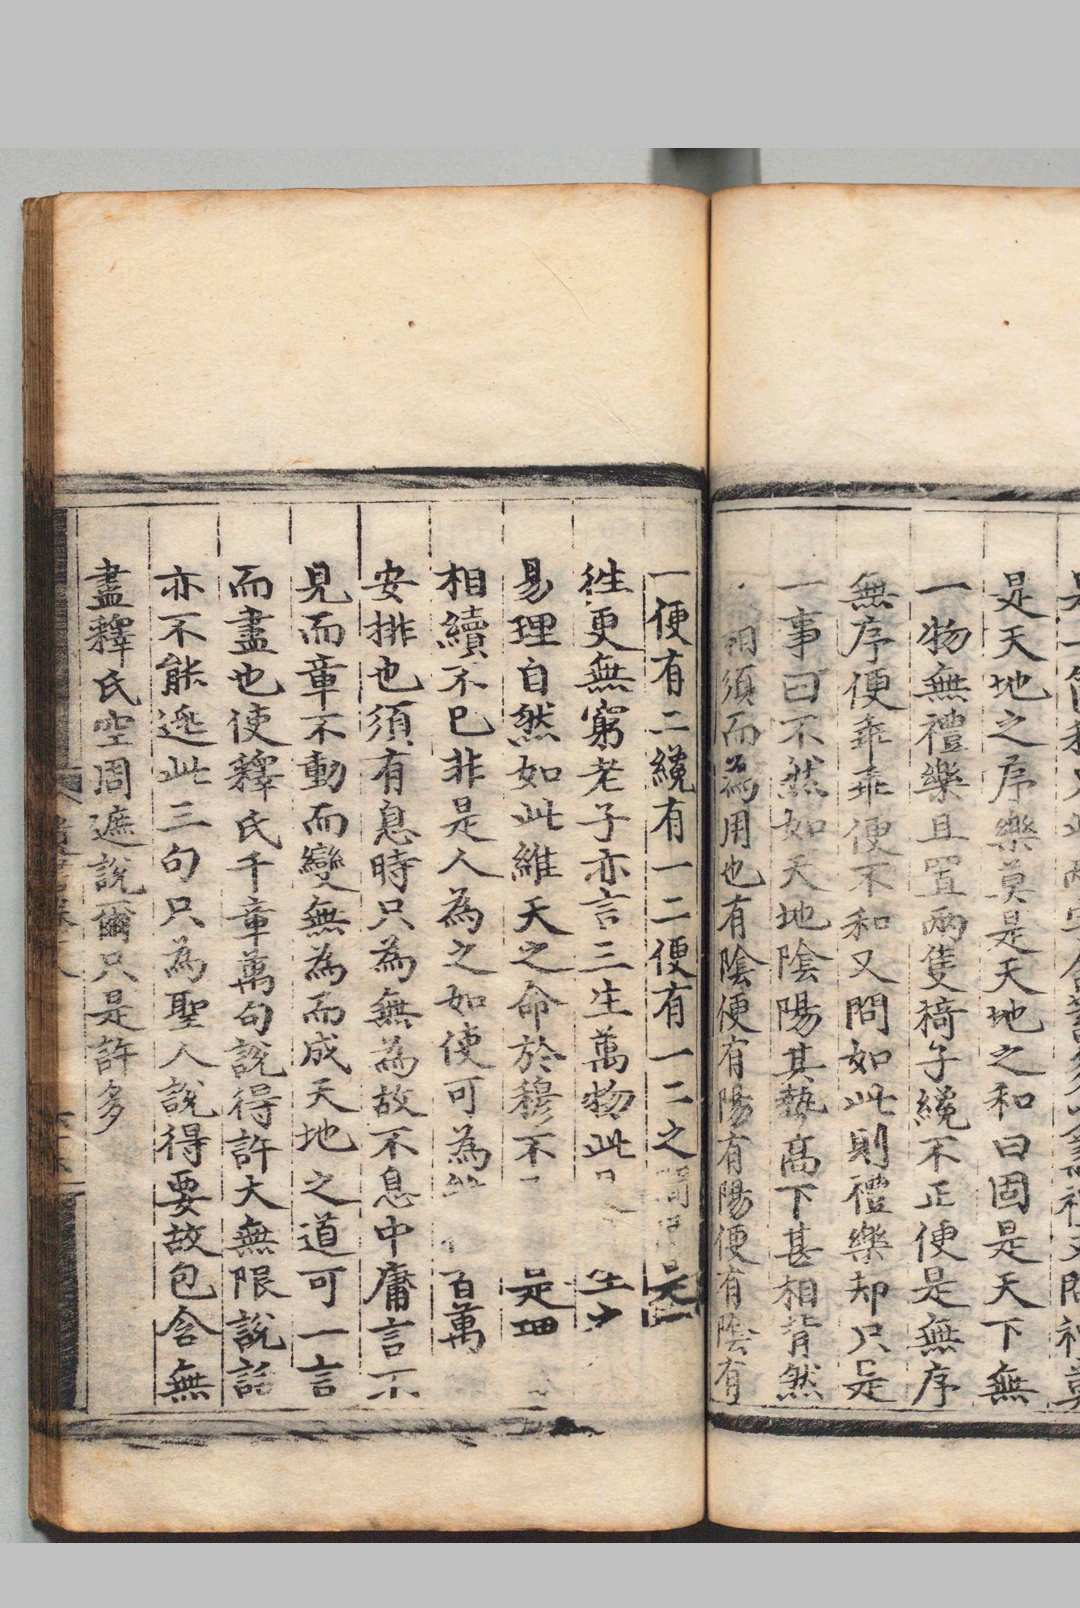 是天地之序樂莫是天地之和曰固是天下無
一物無禮樂且置兩隻椅子纔不正便是無序
無序便乖乖便不和又問如此則禮樂却只是
一事曰不然如天地陰陽其勢高下甚相背然
相須而為用也有陰便有陽有陽便有陰有
一便有二纔有一二便有一二之間便是
徃更無窮老子亦言三生萬物此 生
易理自然如此維天之命於穆不 是
相續不已非是人為之如使可為 百萬
安排也須有息時只為無為故不息中庸言不
見而章不動而變無為而成天地之道可一言
而盡也使釋氏千章萬句說得許大無限說話
亦不能逃此三句只為聖人說得要故包含無
盡釋氏空周遮說爾只是許多